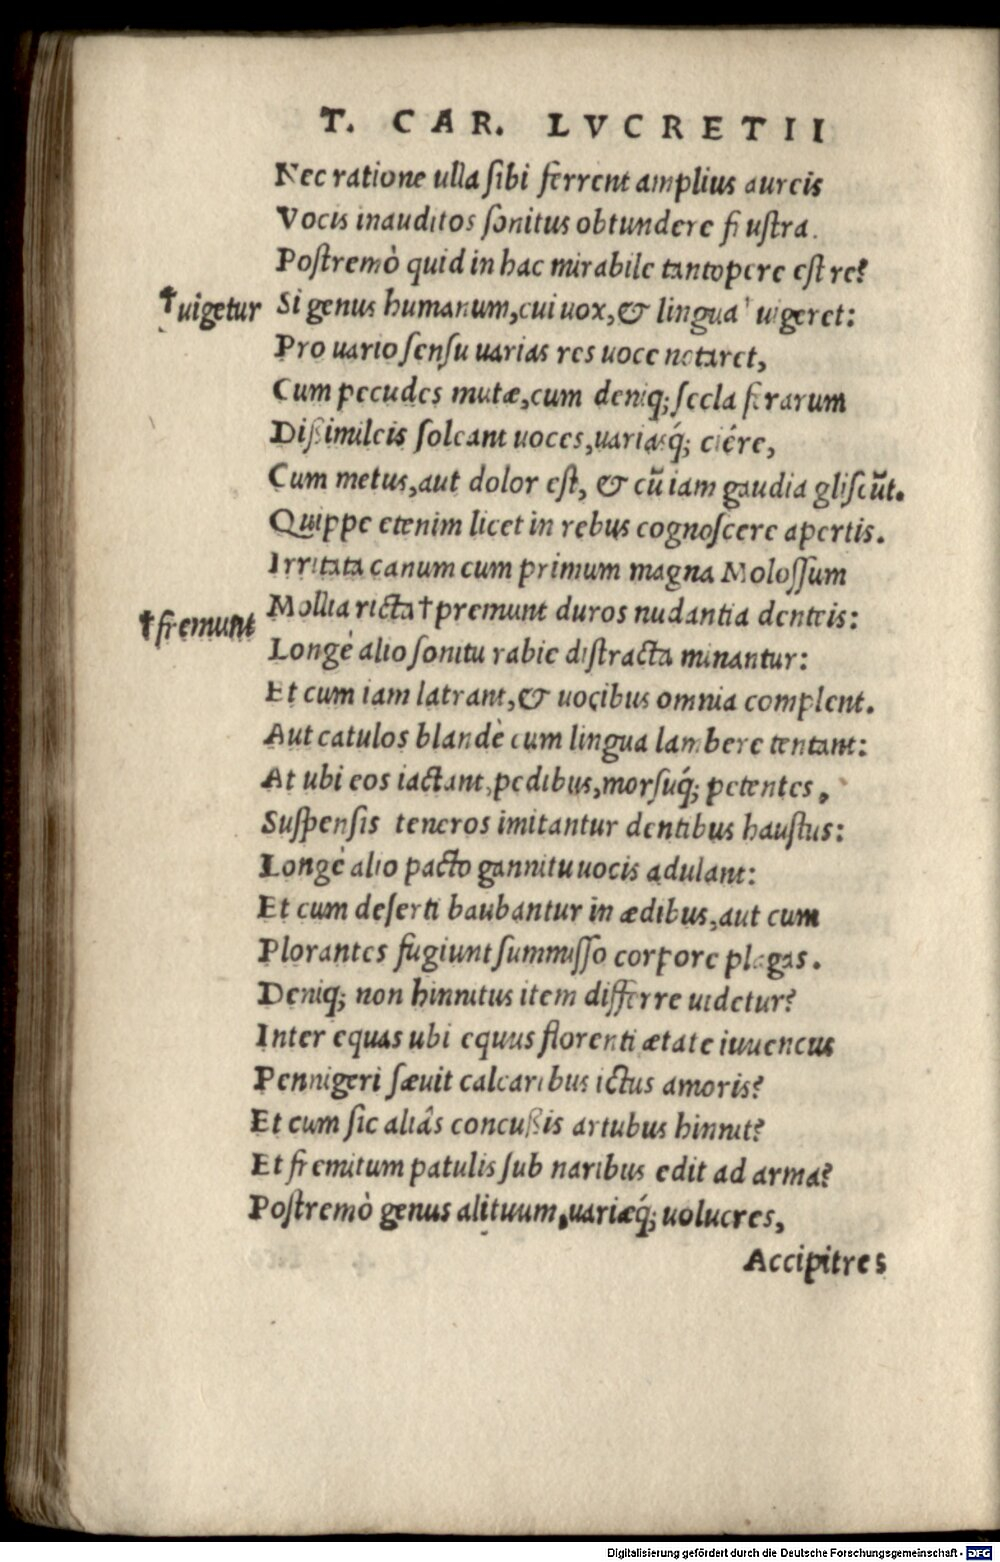 T. CAR. LVCRETII
Nec ratione ulla ſibi ferrent amplius aureis
Vocis inauditos ſonitus obtundere fruſtra.
Poſtremò quid in hac mirabile tantopere eſt re?
†uigetur
Si genus humanum, cui uox, & lingua† uigeret:
Pro uario ſenſu uarias res uoce notaret,
Cum pecudes mutæ, cum deniq; ſecla ferarum
Dißimileis ſoleant uoces, uariasq́; ciére,
Cum metus, aut dolor eſt, & cū iam gaudia gliſcūt.
Quippe etenim licet in rebus cognoſcere apertis.
Irritata canum cum primum magna Moloſſum
†fremunt
Mollia ricta† premunt duros nudantia denteis:
Longè alio ſonitu rabie diſtracta minantur:
Et cum iam latrant, & uocibus omnia complent.
Aut catulos blandè cum lingua lambere tentant:
At ubi eos iactant, pedibus, morſuq́; petentes,
Suſpenſis teneros imitantur dentibus hauſtus:
Longè alio pacto gannitu uocis adulant:
Et cum deſerti baubantur in ædibus, aut cum
Plorantes fugiunt ſummiſſo corpore plagas.
Deniq; non hinnitus item differre uidetur?
Inter equas ubi equus florenti ætate iuuencus
Pennigeri ſæuit calcaribus ictus amoris?
Et cum ſic aliâs concußis artubus hinnit?
Et fremitum patulis ſub naribus edit ad arma?
Poſtremò genus alituum, uariæq́; uolucres,
Accipitres
Digitalisierung gefördert durch die Deutsche Forschungsgemeinschaft - DFG